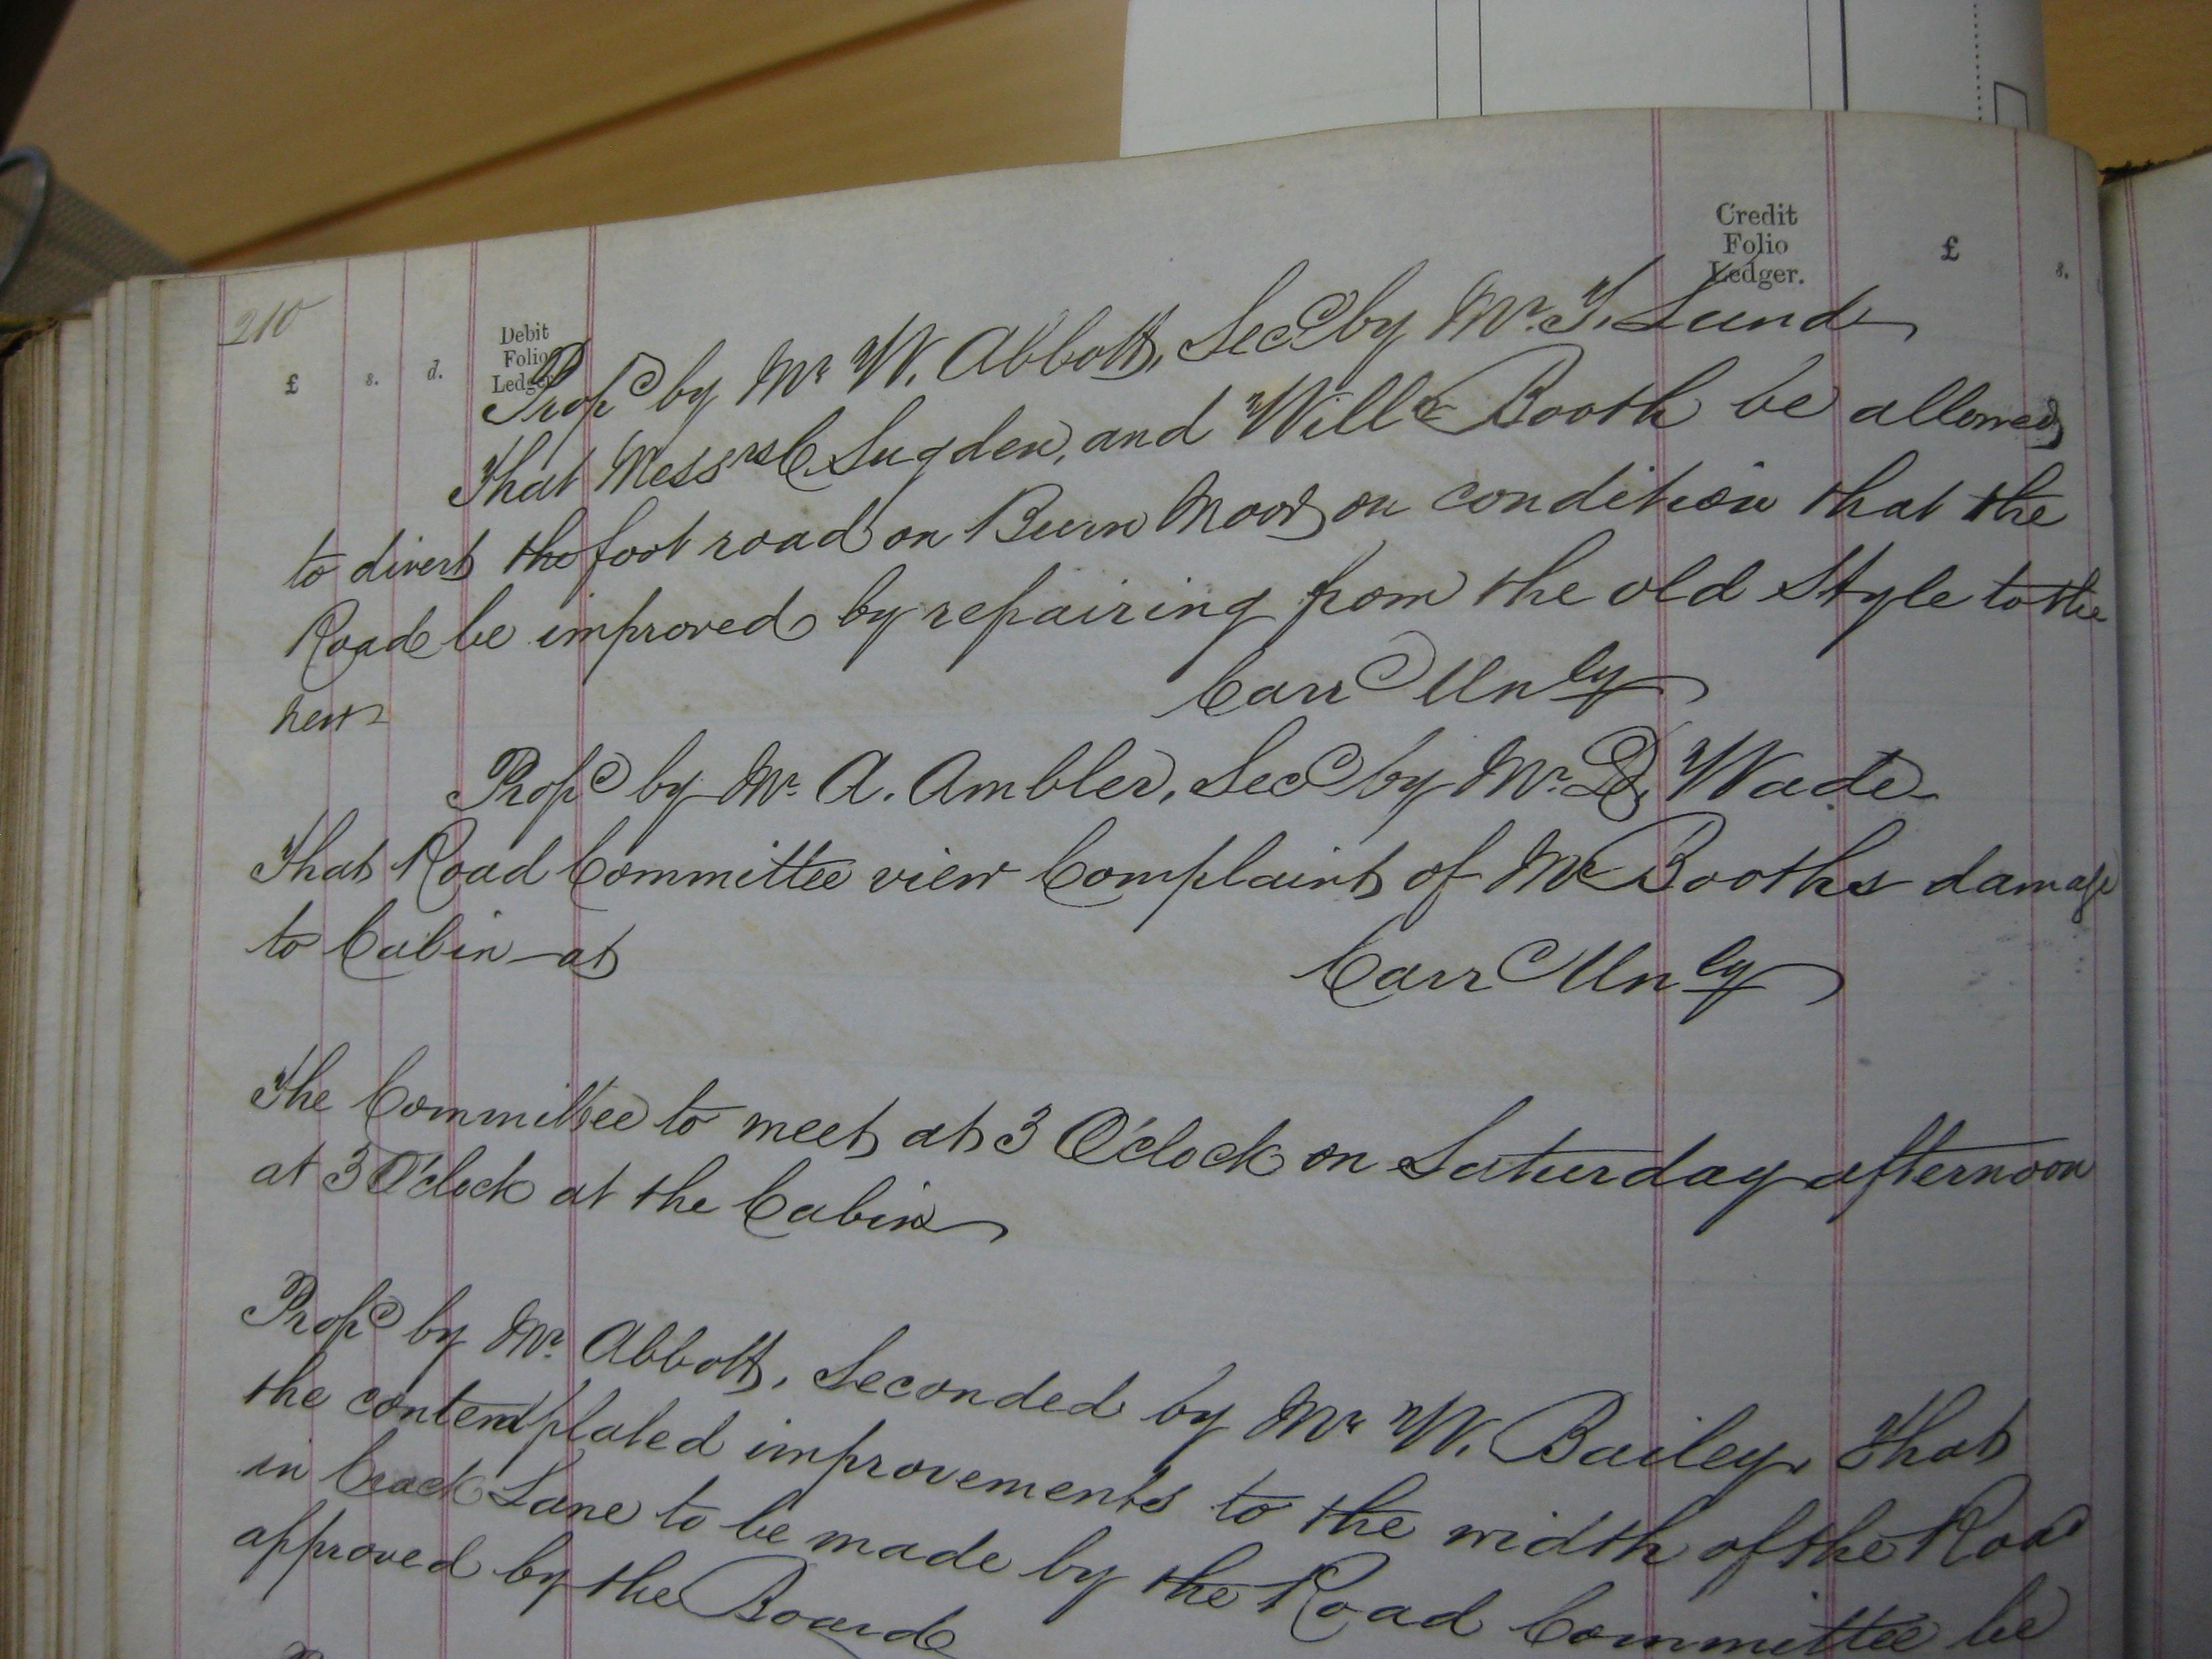 210
£ s. d.
Debit
Folio
Ledger
Credit
Folio
Ledger.
£ s.
Propd by Mr W. Abbott, Secd by Mr. T. Lund
That Messrs C. Sugden, and Willm Booth be allowed
to divert the foot road on Burn Moor on condition that the
Road be improved by repairing from the old Style to the
new
Carrd Unly
Propd by Mr. A. Ambler, Secd by Mr. D. Wade
That Road Committee view Complaint of Mr Booths damage
to Cabin at
Carrd Unly
The Committee to meet at 3 O'clock on Saturday afternoon
at 3 O'clock at the Cabin
Propd by Mr. Abbott, Seconded by Mr W. Bailey, That
the contemplated improvements to the width of the Road
in back Lane to be made by the Road Committee be
approved by the Board